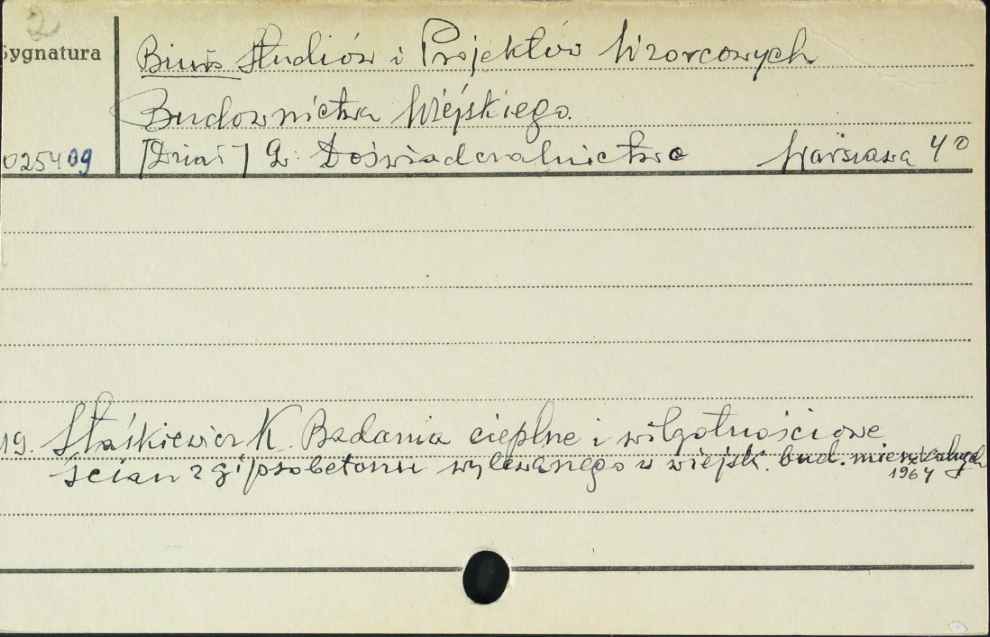 2
Sygnatura
Biuro Studiów i Projektów Wzorcowych
Budownictwa Wiejskiego.
025409 [Dział] 2. Doświadczalnictwo Warszawa 4°
19. Staśkiewicz K. Badania cieplne i wilgotnościowe
ścian z gipsobetonu wylewanego w wiejsk. bud. mieszkalnych
1964